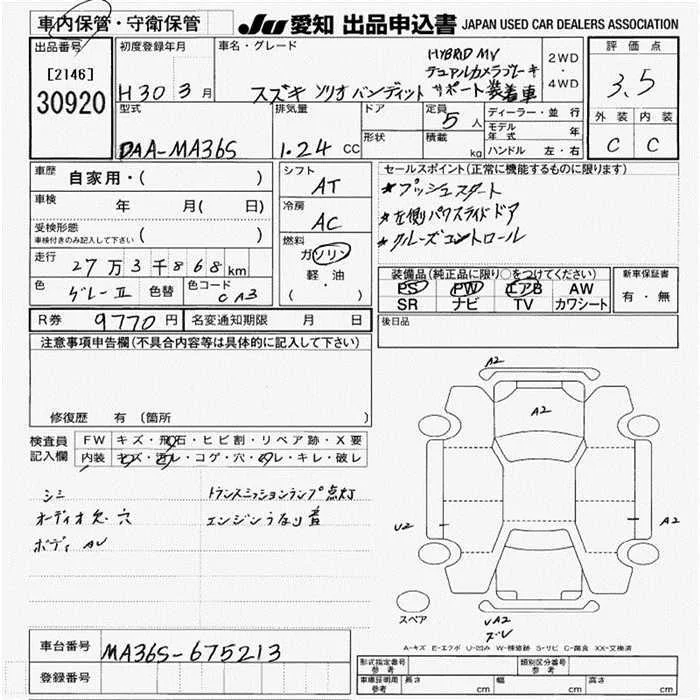 車内保管・守衛保管 JU 愛知 出品申込書 JAPAN USED CAR DEALERS ASSOCIATION
出品番号 初度登録年月 車名・グレード 評価点
[2146] HYBRID MV 2WD
30920 H30 3月 スズキ ソリオ バンディット デュアルカメラブレーキ サポート装着車 ・ 4WD 3.5
型式 排気量 ドア 定員 5人 ディーラー・並行 外装 内装
DAA-MA36S 1.24 CC 形状 積載 kg モデル年式 年 C C
ハンドル 左・右
車歴 自家用・( ) シフト AT セールスポイント(正常に機能するものに限ります)
車検 年 月( 日) 冷房 AC *プッシュスタート
受検形態 *左側パワスライドドア
車検付きのみ記入して下さい ( ) 燃料 ガソリン *クルーズコントロール
走行 27万3千868km 軽油 装備品(純正品に限り○をつけてください) 新車保証書
色 グレーII 色替 色コード CA3 ( ) PS PW エアB AW 有・無
SR ナビ TV カワシート
R券 9770円 名変通知期限 月 日 後日品
注意事項申告欄(不具合内容等は具体的に記入して下さい)
A2
A2
修復歴 有(箇所 )
検査員 FW キズ・飛石・ヒビ割・リペア跡・X要
記入欄 内装 キズ・汚レ・コゲ・穴・ヌレ・キレ・破レ
シミ トランスミッションランプ点灯
オーディオ欠、穴 エンジンうなり音
U2 A2
ボディ AU
スペア
UA2
A-キズ E-エクボ U-凹み W-補修跡 S-サビ C-腐食 XX-交換済
車台番号 MA36S-675213
登録番号
形式指定番号 参考 類別区分番号 参考
車庫証明用 参考 長さ cm 幅 cm 高さ cm